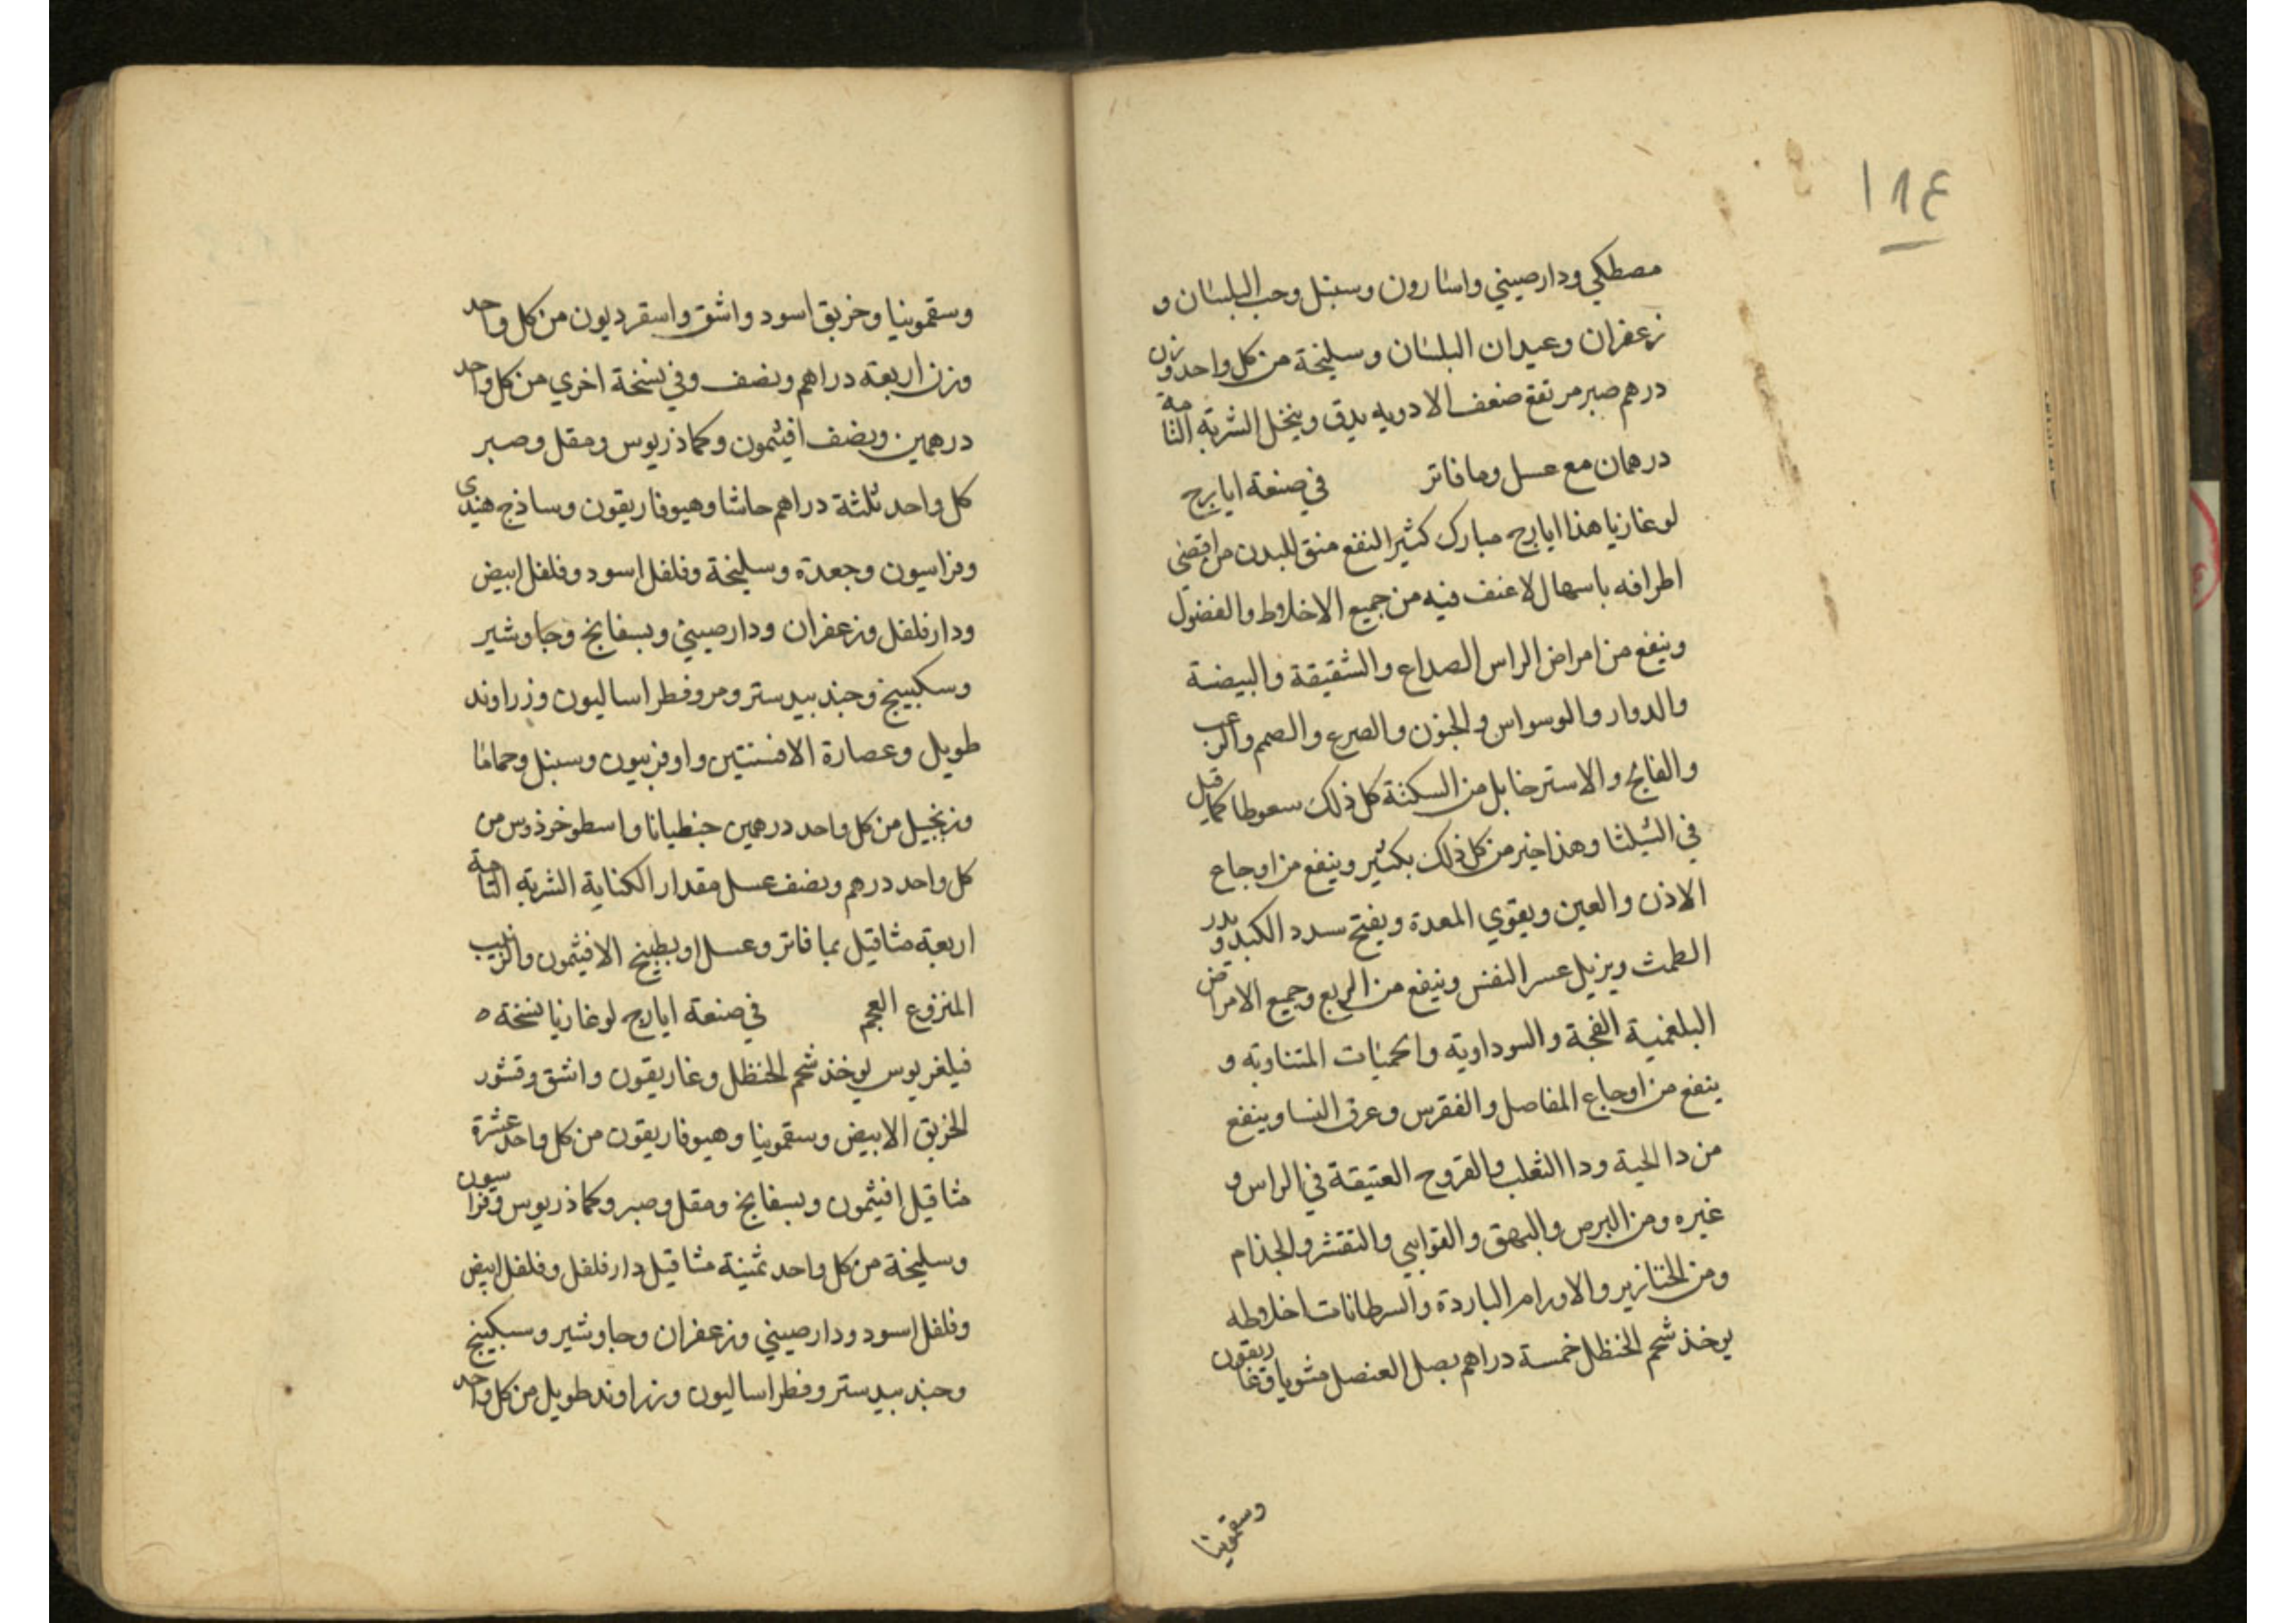 ١٨٤
مصطكي ودارصيني واسارون وسنبل وحب البلسان و
زعفران وعيدان البلسان وسليخة من كل واحد وزن
درهم صبر مرتفع ضعف الادويه يدق وينخل الشربة التامة
درهمان مع عسل وما فاتر في صنعة ايارج
لوغازيا هذا ايارج مبارك كثير النفع منق للبدن من اقصى
اطرافه باسهال لا عنف فيه من جميع الاخلاط والفضول
وينفع من امراض الراس الصداع والشقيقة والبيضة
والدوار والوسواس والجنون والصرع والصمم والرعب
والفالج والاسترخا بل من السكتة كل ذلك سعوطا كما قيل
في الشيلثا وهذا خير من كل ذلك بكثير وينفع من اوجاع
الاذن والعين ويقوي المعدة ويفتح سدد الكبد ويدر
الطمث ويزيل عسر النفس وينفع من الربع وجميع الامراض
البلغمية الفجة والسوداوية والحميات المتناوبة و
ينفع من اوجاع المفاصل والنقرس وعرق النسا وينفع
من دا الحية ودا الثعلب والقروح العتيقة في الراس و
غيره ومن البرص والبهق والقوابي والتقشر والجذام
ومن الخنازير والاورام الباردة والسرطانات اخلاطه
يوخذ شحم الحنظل خمسة دراهم بصل العنصل مشويا وغاريقون
وسقمونيا
وسقمونيا وخربق اسود واشق واسقرديون من كل واحد
وزن اربعة دراهم ونصف وفي نسخة اخري من كل واحد
درهمين ونصف افيثمون وكماذريوس ومقل وصبر
كل واحد ثلثة دراهم حاشا وهيوفاريقون وساذج هندي
وفراسيون وجعدة وسليخة وفلفل اسود وفلفل ابيض
ودارفلفل وزعفران ودارصيني وبسفايج وجاوشير
وسكبينج وجندبيدستر ومر وفطراساليون وزراوند
طويل وعصارة الافسنتين واوفربيون وسنبل وحماما
وزنجبيل من كل واحد درهمين جنطيانا واسطوخوذوس من
كل واحد درهم ونصف عسل مقدار الكفاية الشربة التامة
اربعة مثاقيل بما فاتر وعسل او بطبيخ الافيثمون والزبيب
المنزوع العجم في صنعة ايارج لوغازيا نسخة ٥
فيلغريوس يوخذ شحم الحنظل وغاريقون واشق وقشور
الخربق الابيض وسقمونيا وهيوفاريقون من كل واحد عشرة
مثاقيل افيثمون وبسفايج ومقل وصبر وكماذريوس وفراسيون
وسليخة من كل واحد ثمنية مثاقيل دارفلفل وفلفل ابيض
وفلفل اسود ودارصيني وزعفران وجاوشير وسكبينج
وجندبيدستر وفطراساليون وزراوند طويل من كل واحد